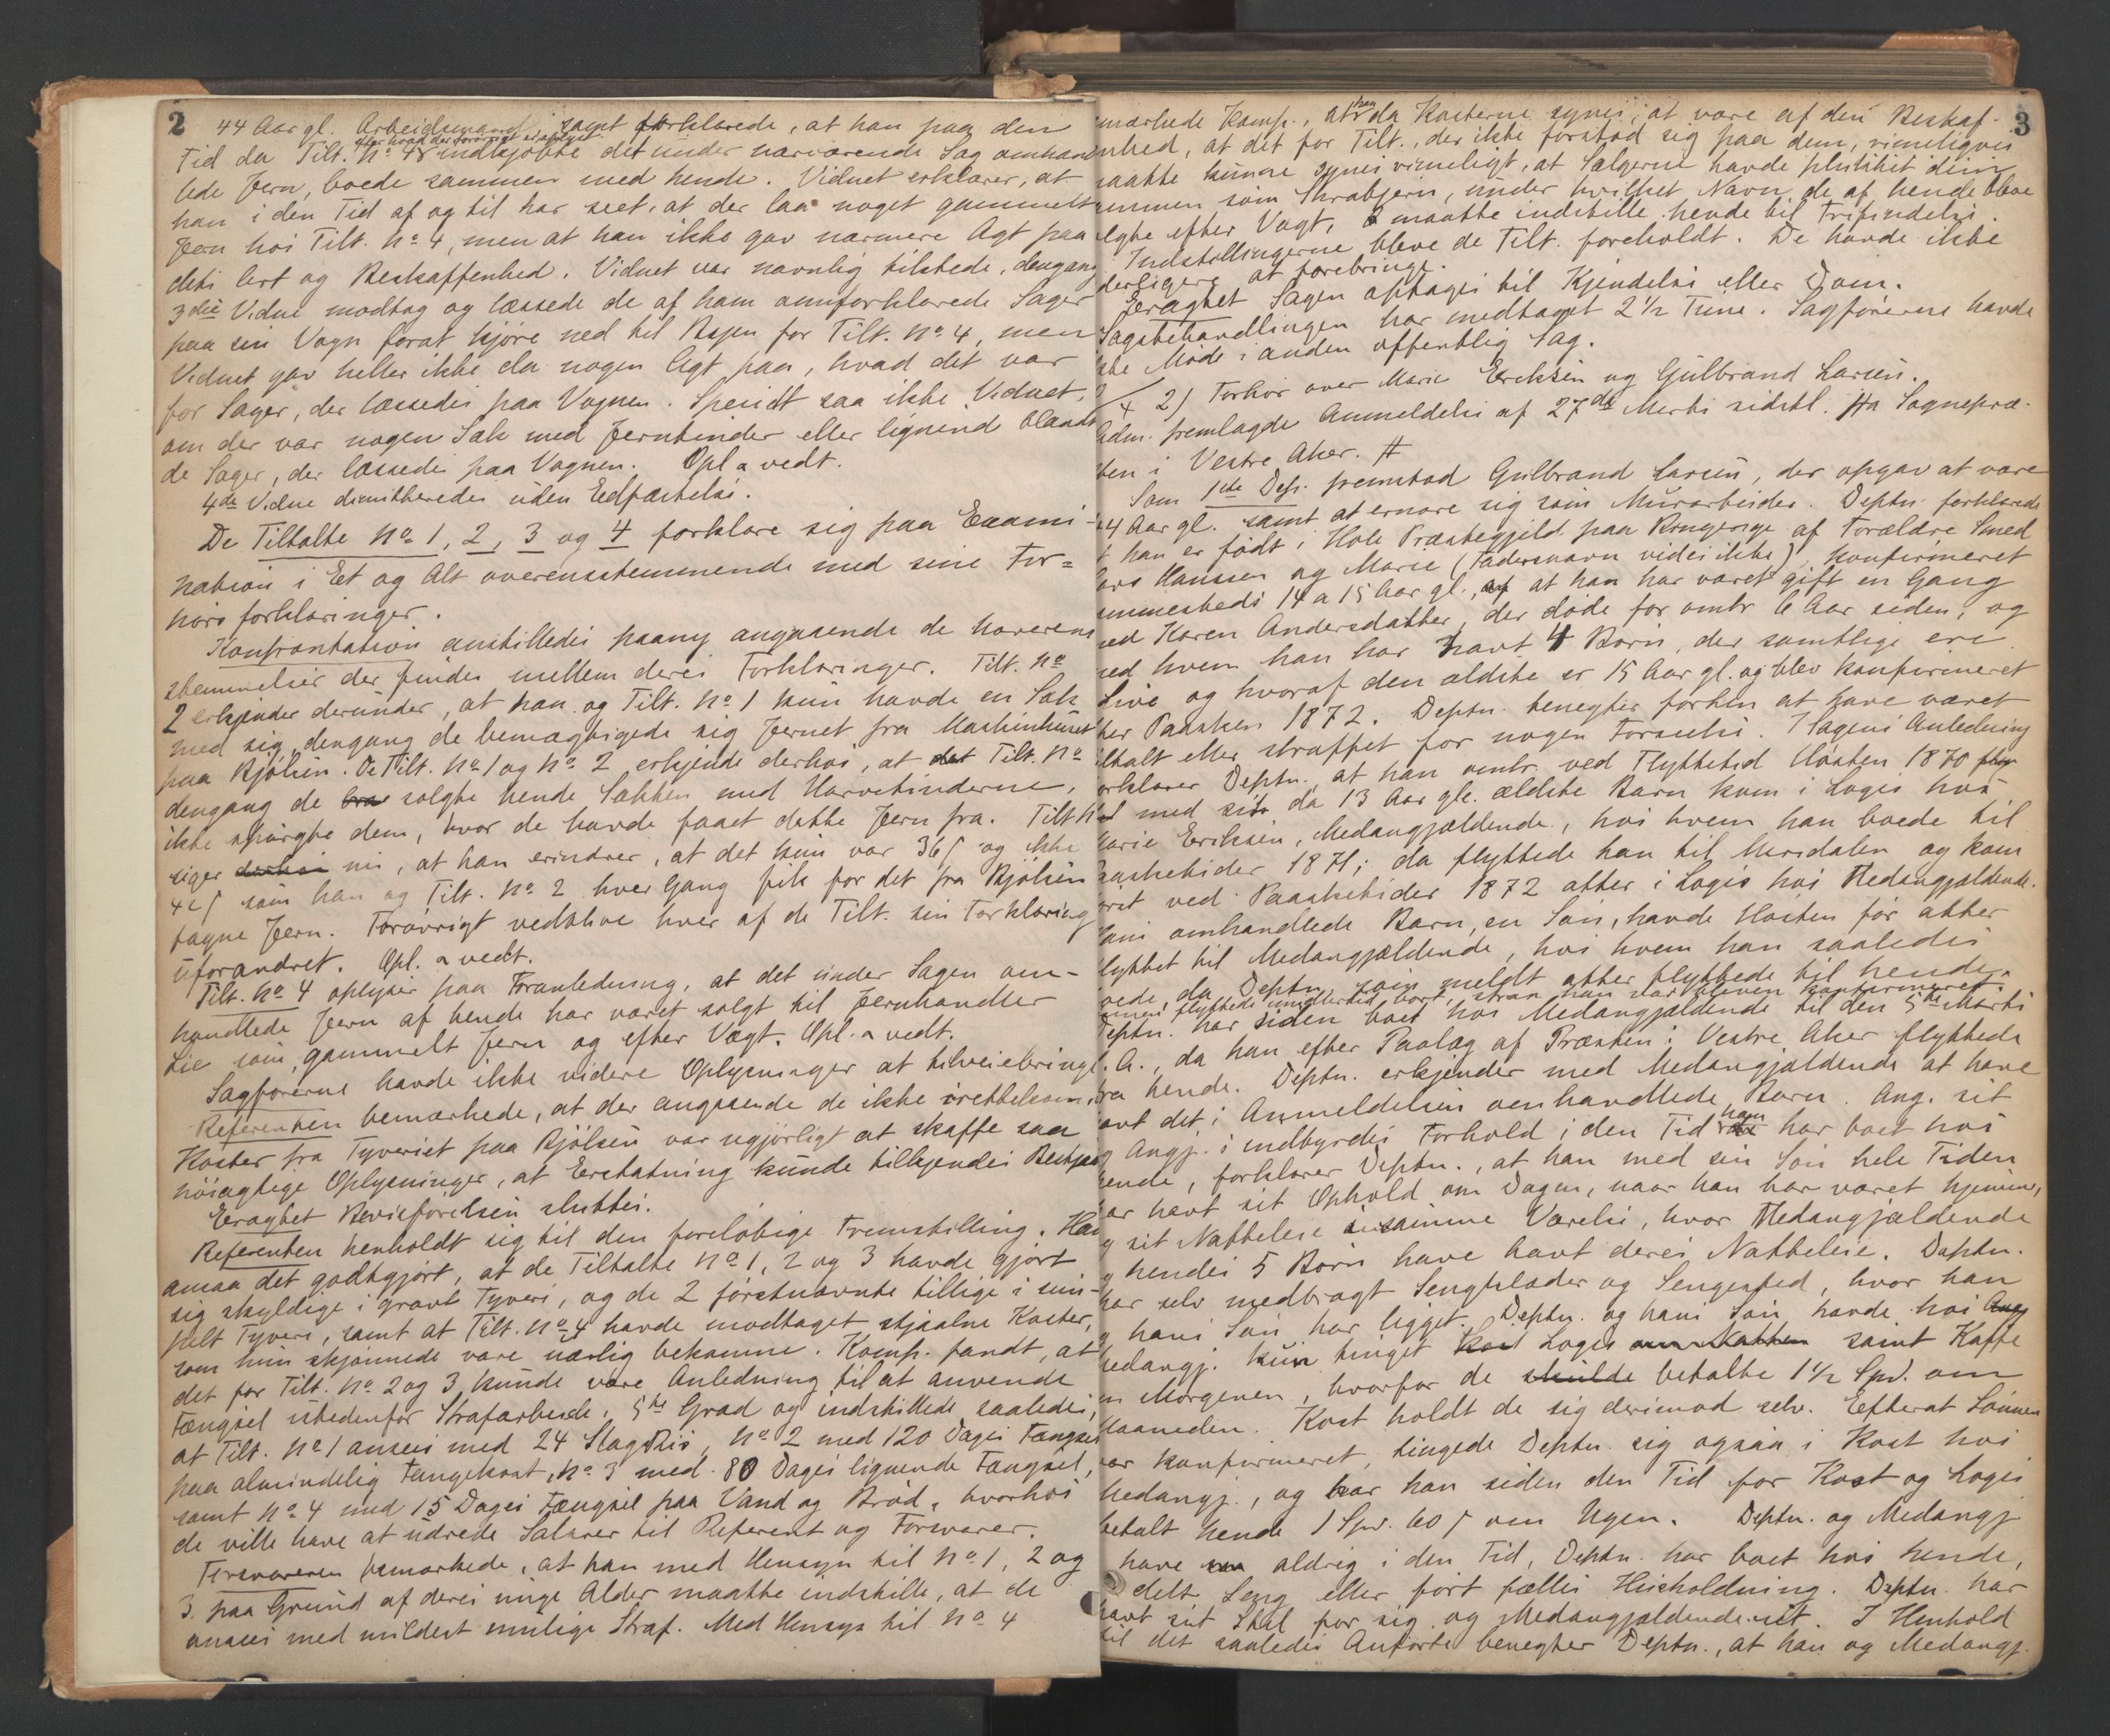 2
44 Aar gl. Arbeidsmand samt forklarede, at han paa den
efter hvad der forøvrigt er oplyst
Tid da Tilt. No 4 indkjøbte det under nærværende Sag omhand
lede Jern, boede sammen med hende. Vidnet erklærer, at
han i den Tid af og til har seet, at der laa noget gammelt
Jern hos Tilt. No 4, men at han ikke gav nærmere Agt paa
dets Art og Beskaffenhed. Vidnet var navnlig tilstede, dengang
3die Vidne modtog og læssede de af ham omforklarede Sager
paa sin Vogn forat kjøre ned til Byen for Tilt. No 4, men
Vidnet gav heller ikke da nogen Agt paa, hvad det var
for Sager, der læssedes paa Vognen. Specielt saa ikke Vidnet,
om der var nogen Sæk med Jerntinder eller lignend blandt
de Sager, der læssedes paa Vognen. Opl. & vedt.
4de Vidne dimitteredes uden Eedfæstelse.
De Tiltalte No 1, 2, 3 og 4 forklare sig paa Exami-
nation i Et og Alt overensstemmende med sine For=
hørsforklaringer.
Konfrontation anstilledes paany angaaende de Uoverens
stemmelser der findes mellem deres Forklaringer. Tilt. No
2 erkjender derunder, at han og Tilt. No 1 kun havde en Sæk
med sig, dengang de bemægtigede sig Jernet fra Maskinhuset
paa Bjølsen. De Tilt. No 1 og No 2 erkjende derhos, at det Tilt. No
dengang de bra solgte hende Sækken med Harvetinderne,
ikke spurgte dem, hvor de havde faaet dette Jern fra. Tilt. No
siger derhos nu, at han erindrer, at det kun var 36 ſ og ikke
42 ſ som han og Tilt. No 2 hver Gang fik for det fra Bjølsen
tagne Jern. Forøvrigt vedblive hver af de Tilt. sin Forklaring
uforandret. Opl. & vedt.
Tilt. No 4 oplyser paa Foranledning, at det under Sagen om-
handlede Jern af hende har været solgt til Jernhandler
Lie som gammelt Jern og efter Vægt. Opl. & vedt.
Sagførerne havde ikke videre Oplysninger at tilveiebringe
Referenten bemærkede, at der angaaende de ikke irettekomne
Koster fra Tyveriet paa Bjølsen var ugjørligt at skaffe saa
nøiagtige Oplysninger, at Erstatning kunde tilkjendes Bestjaalne
Eragtet Bevisførelsen sluttes.
Referenten henholdt sig til den foreløbige Fremstilling. Han
ansaa det godtgjort, at de Tiltalte No 1, 2 og 3 havde gjort
sig skyldige i grovt Tyveri, og de 2 førstnævnte tillige i sim-
pelt Tyveri, samt at Tilt. No 4 havde modtaget stjaalne Koster,
som hun skjønnede være uærlig bekomne. Komp. fandt, at
det for Tilt. No 2 og 3 kunde være Anledning til at anvende
Fængsel istedenfor Strafarbeide i 5te Grad og indstillede saaledes,
at Tilt. No 1 ansees med 24 Slag Ris, No 2 med 120 Dages Fængsel
paa almindelig Fangekost, No 3 med 80 Dages lignende Fængsel,
samt No 4 med 15 Dages Fængsel paa Vand og Brød, hvorhos
de ville have at udrede Salarer til Referent og Forsvarer.
Forsvareren bemærkede, at han med Hensyn til No 1, 2 og
3 paa Grund af deres unge Alder maatte indstille, at de
ansees med mildest mulige Straf. Med Hensyn til No 4
3
mærkede Komp., at han da Kosterne synes, at være af den Beskaf-
enhed, at det for Tilt., der ikke forstod sig paa dem, rimeligvis
maatte kunne synes rimeligt, at Sælgerne havde plukket dem
ammen som Skrabjern, under hvilket Navn de af hende bleve
olgte efter Vægt, maatte indstille hende til Frifindelse.
Indstillingerne bleve de Tilt. foreholdt. De havde ikke
derligere at forebringe.
Eragtet Sagen optages til Kjendelse eller Dom.
Sagsbehandlingen har medtaget 2 1/2 Time. Sagførerne havde
ikke Møde i anden offentlig Sag.
2) Forhør over Marie Eriksen og Gulbrand Larsen.
Adm. fremlagde Anmeldelse af 27de Marts sidstl. fra Sognepræ-
sten i Vestre Aker. #
Som 1ste Dep. fremstod Gulbrand Larsen, der opgav at være
44 Aar gl. samt at ernære sig som Murarbeider. Deptn. forklarede
t han er født i Hole Præstegjeld paa Ringerige af Forældre Smed
Lars Hanssen og Marie (Fadersnavn vides ikke), konfirmeret
ammesteds 14 a 15 Aar gl., at han har været gift en Gang
med Karen Andersdatter, der døde for omtr 6 Aar siden, og
med hvem han har havt 4 Børn, der samtlige ere
Live og hvoraf den ældste er 15 Aar gl. og blev konfirmeret
ter Paasken 1872. Deptn. benegter forhen at have været
iltalt eller straffet for nogen Forseelse. I Sagens Anledning
orklarer Deptn., at han omtr. ved Flyttetid Høsten 1870 flyt
ed med sit da 13 Aar gle. ældste Barn kom i Logis hos
Marie Eriksen, Medangjældende, hos hvem han boede til
Paasketider 1871; da flyttede han til Mersdalen og kom
ørst ved Paasketider 1872 atter i Logis hos Medangjældende.
Hans omhandlede Barn, en Søn, havde Høsten før atter
lyttet til Medangjældende, hos hvem han saaledes
oede, da Deptn. som meldt atter flyttede til hende.
flyttede imidlertid bort, strax han var bleven konfirmeret.
Deptn. har siden boet hos Medangjældende til den 5te Marts
d. A., da han efter Paalæg af Præsten i Vestre Aker flyttede
fra hende. Deptn. erkjender med Medangjældende at have
avt det i Anmeldelsen omhandlede Barn. Ang. sit
og Angj.s indbyrdes Forhold i den Tid han har boet hos
hende, forklarer Deptn., at han med sin Søn hele Tiden
har havt sit Ophold om Dagen, naar han har været hjemme,
og sit Natteleie i samme Værelse, hvor Medangjældende
og hendes 5 Børn have havt deres Natteleie. Deptn.
har selv medbragt Sengklæder og Sengested, hvor han
og hans Søn har ligget. Deptn. og hans Søn havde hos Ang
Medangj. kun tinget Kost Logis samt Kaffe
om Morgenen, hvorfor de skulde betalte 1 1/2 Spd. om
Maaneden. Kost holdt de sig derimod selv. Efterat Sønnen
var konfirmeret, tingede Deptn. sig ogsaa i Kost hos
Medangj., og har han siden den Tid for Kost og Logis
betalt hende 1 Spd. 60 ſ om Ugen. Deptn. og Medangj
have aldrig i den Tid, Deptn. har boet hos hende,
delt Seng eller ført fælles Husholdning. Deptn. har
havt sit Stel for sig og Medangjældende sit. I Henhold
til det saaledes Anførte benegter Deptn., at han og Medangj.